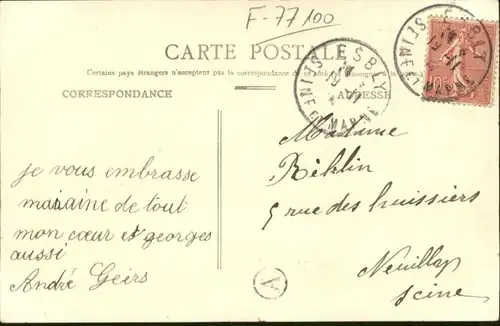 F-77100
CARTE POSTALE
Certains pays étrangers n'acceptent pas la correspondance de ce côté
CORRESPONDANCE
ADRESSE
ESBLY
SEINE ET MARNE
ESBLY
SEINE ET MARNE
10
je vous embrasse
maraine de tout
mon cœur et georges
aussi
André Geirs
A
Madame
5 rue des huissiers
Neuilly
Seine